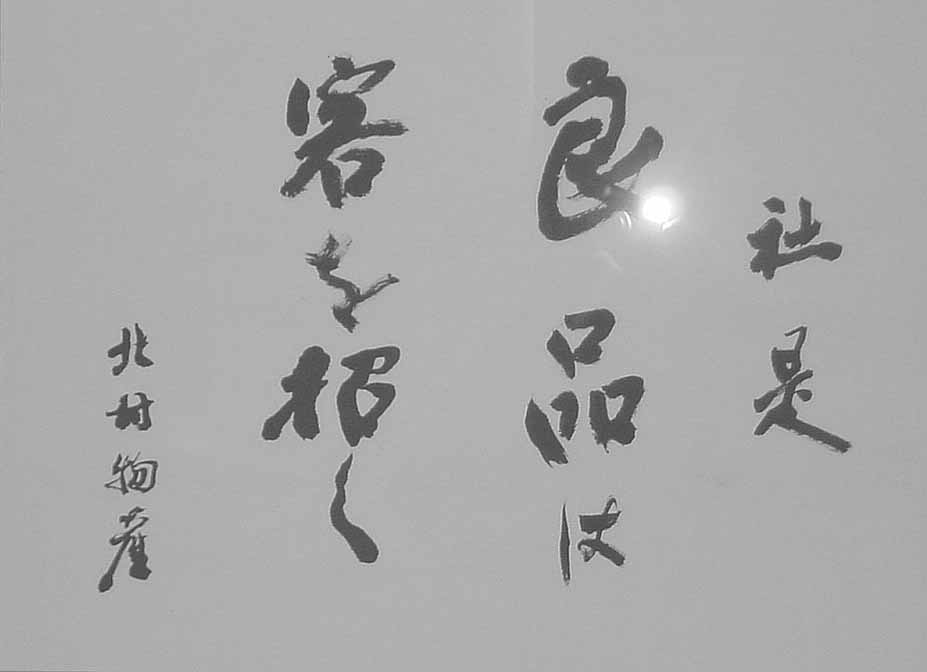 社是
良品は
客を招く
北村物産